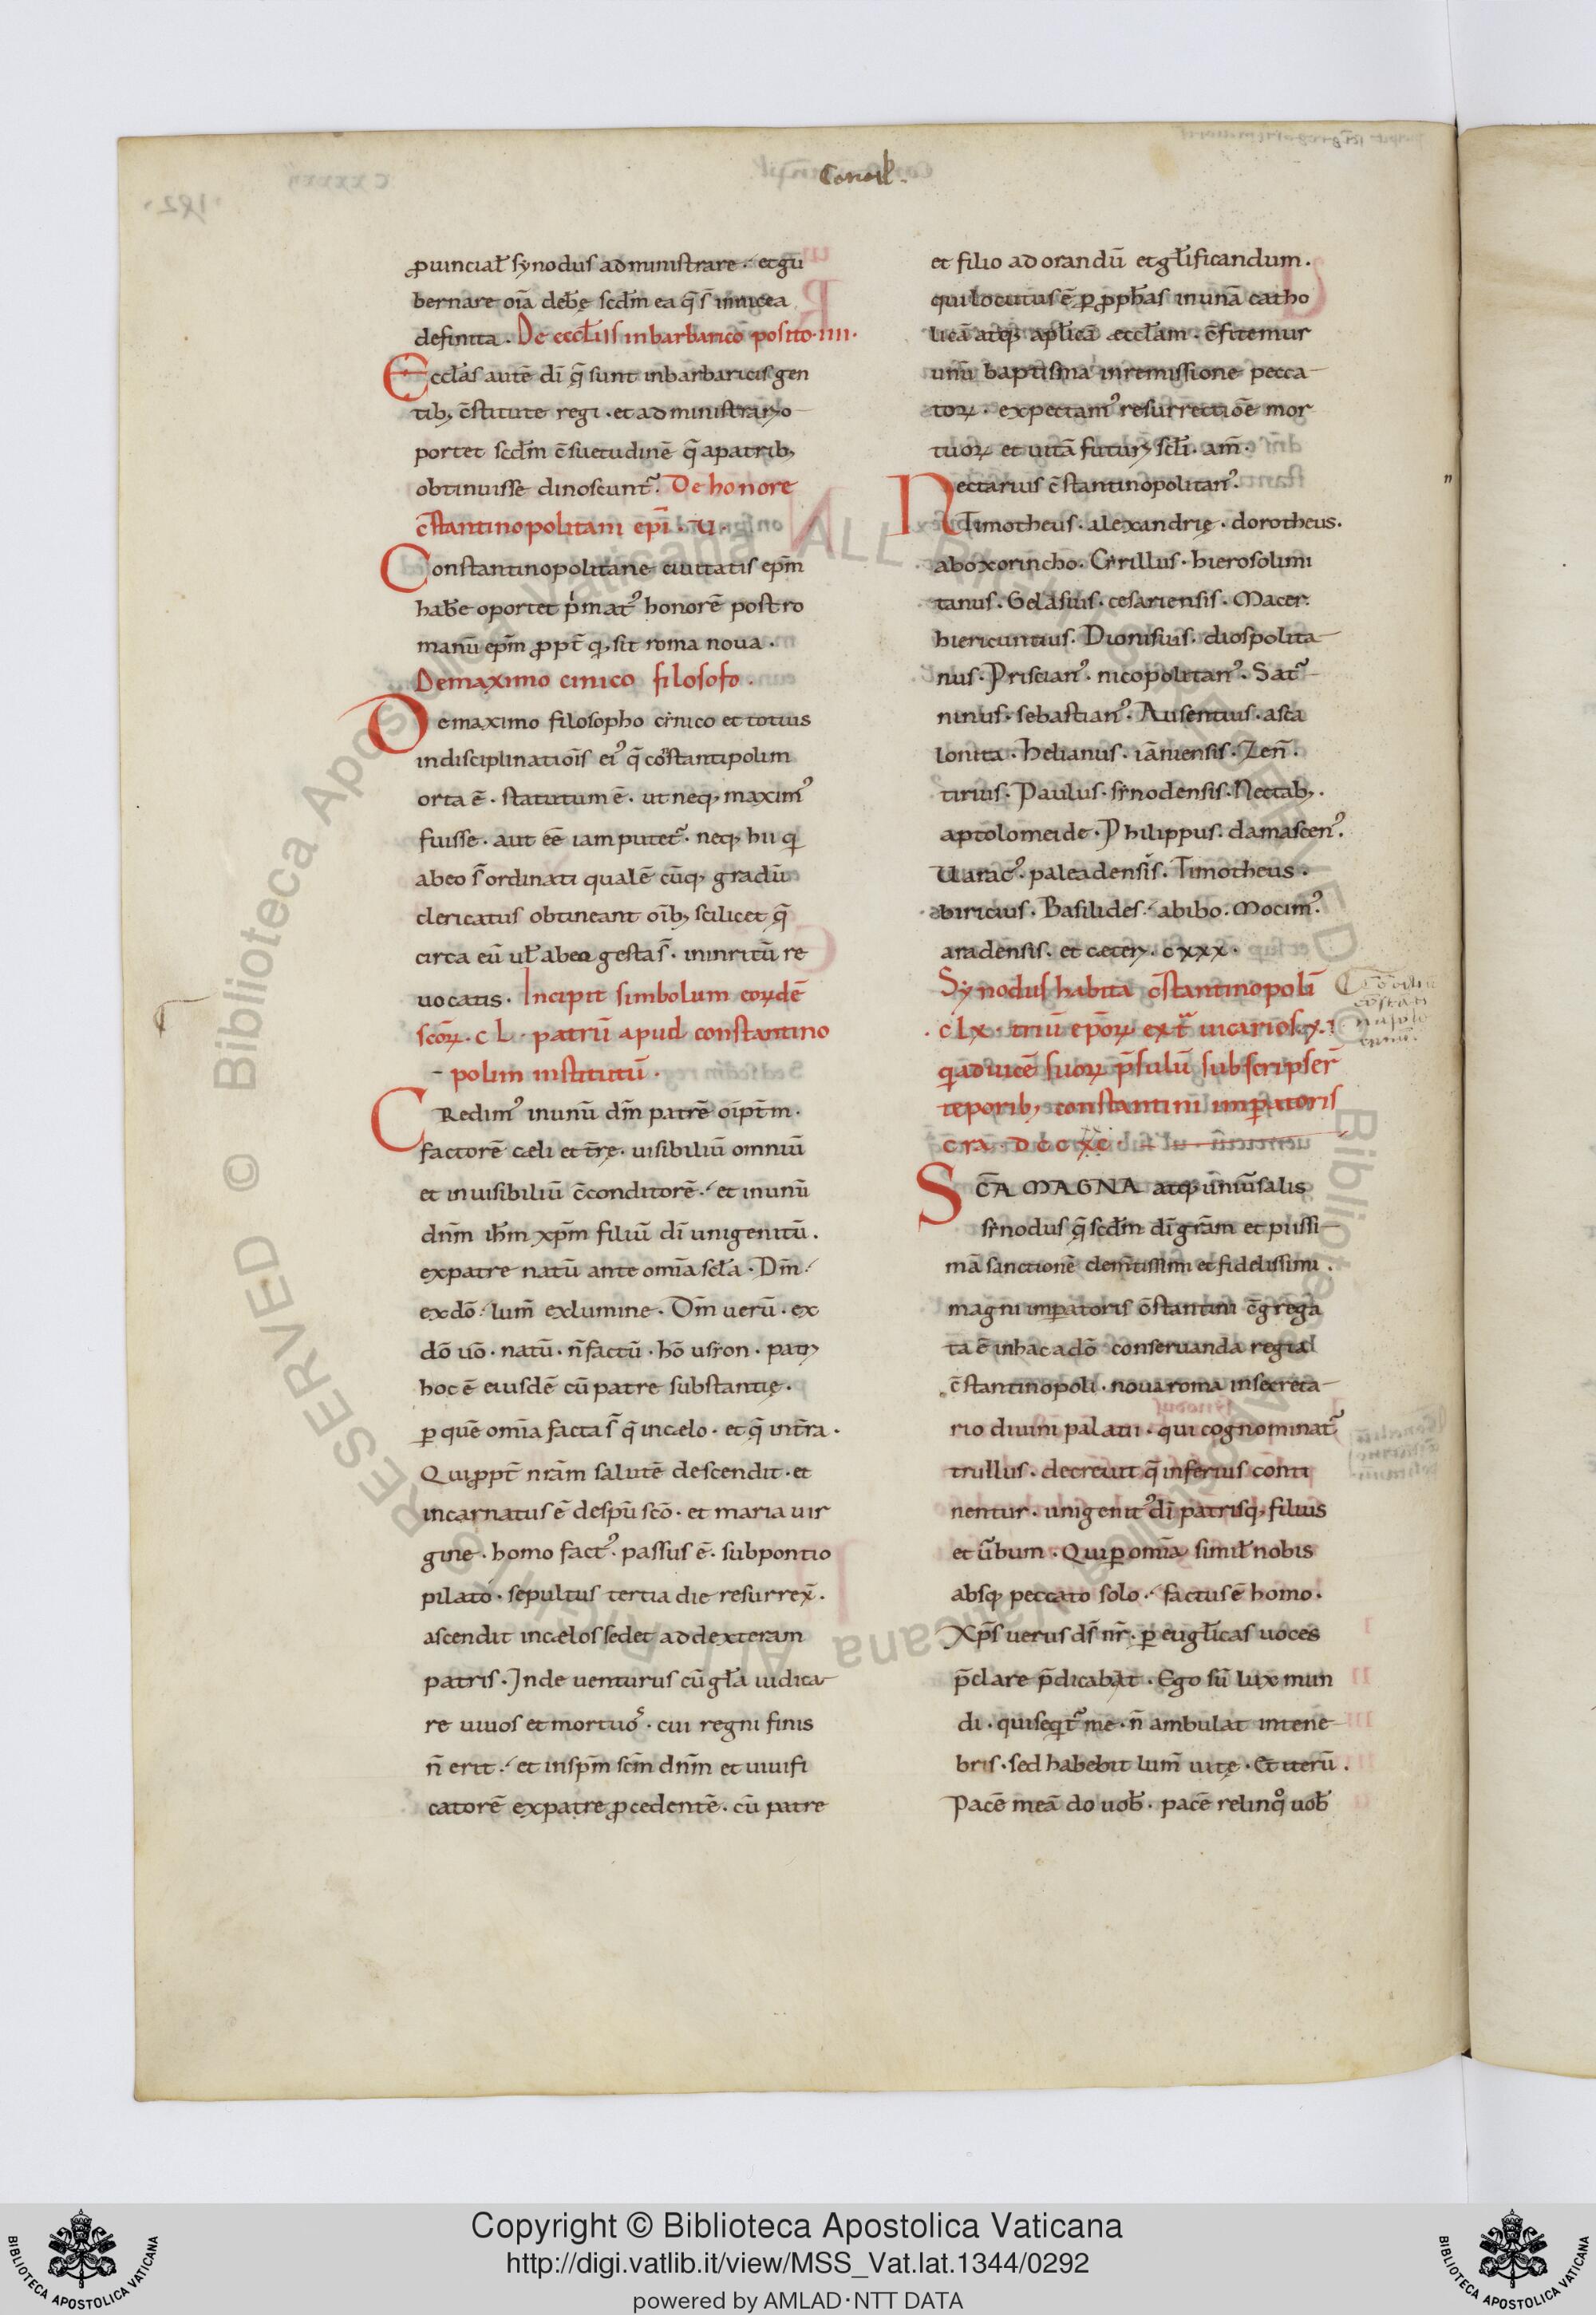 Concil.
ꝓuincial̄ synodus administrare. et gu
bernare oīa deb&ę scdm̄ ea q̄ s̄ innicea
definita. De eccl̄iis inbarbarico posito. iiii.
Eccl̄as autē dī q̄ sunt inbarbaricis gen
tib; c̄stitute regi. et administrari o
port& scdm̄ c̄suetudinē q̄ apatrib;
obtinuisse dinoscunt᷑. De honore
c̄stantinopolitani ep̄i. u.
Constantinopolitane ciuitatis ep̄m
hab̄e oport& pͥmat᾽ honorē post ro
manū ep̄m ꝓpt̄ q; sit roma noua.
De maximo cinico filosofo.
De maximo filosopho cinico et totius
indisciplinatiōis ei᾽ q̄ cōstantipolim
orta ē. statutum ē. ut neq; maxim᾽
fuisse. aut eē iam putet᷑. neq; hii qͥ
abeo s̄ ordinati qualē cūq; gradū
clericatus obtineant oīb; scilicet q̄
circa eū ul̄ abeo gesta s̄. inirritū re
uocatis. Incipit simbolum eorꝝdē
scōꝝ. cL. patrū apud constantino
polim institutū.
CRedim᾽ inunū dm̄ patrē oīpt̄m.
factorē cæli et t̄rę. uisibiliū omniū
et inuisibiliū c̄conditorē. et inunū
dnm̄ ihm̄ xpm̄ filiū dī unigenitū.
expatre natū ante omīa scl̄a. Dm̄
exdō. lum̄ exlumine. Dm̄ uerū. ex
dō uō. natū. n̄ factū. hō usion. patri
hoc ē eiusdē cū patre substantię.
ꝑ quē omīa facta s̄ q̄ incælo. et q̄ int̄ra.
Qui ꝓpt̄ nrām salutē descendit. et
incarnatus ē despū scō. et maria uir
gine. homo fact᾽. passus ē. subpontio
pilato. sepultus tertia die resurrex̄.
ascendit incælos sedet addexteram
patris. Inde uenturus cū gl̄a iudica
re uiuos et mortuos. cui regni finis
n̄ erit. et inspm̄ scm̄ dnm̄ et uiuifi
catorē expatre ꝓcedentē. cū patre
et filio adorandū et gl̄ificandum.
qui locutus ē ꝑ ꝓph̄as inunā catho
licā atq; apl̄icā æccl̄am. c̄fitemur
unū baptisma inremissione pecca
toꝝ. expectam᾽ resurrectiōē mor
tuoꝝ et uitā futuri scl̄i. am̄.
Nectarius c̄stantinopolitan᾽.
Timotheus. alexandrię. dorotheus.
aboxorincho. Cirillus. hierosolimi
tanus. Gelasius. cesariensis. Macer.
hiericuntius. Dionisius. diospolita
nus. Priscian᾽. nicopolitan᾽. Sat᷑
ninus. sebastian᾽. Ausentius. asca
lonita. Helianus. iāniensis. Zen̄.
tirius. Paulus. sinodensis. Nectab;.
aptolomeide. Philippus. damascen᾽.
Uarac᾽. paleadensis. Timotheus.
biricius. Basilides. abibo. Mocim᾽.
aradensis. et cæteri. cxxx.
Synodus habita c̄stantinopoli
.cLx. triū ep̄oꝝ
qͥ aduicē suoꝝ p̄sulū subscripser̄
tēporib; constantini imꝑatoris
era. dccxc.
SC̄A MAGNA atq; uniūsalis
sinodus q̄ scdm̄ dī grām et piissi
mā sanctionē clem̄tissimi et fidelissimi.
magni imꝑatoris c̄stantini c̄grega
ta ē inhac adō conseruanda regia
c̄stantinopoli. noua roma insecreta
rio diuini palatii. qui cognominat᷑
trullus. decreuit q̄ inferius conti
nentur. unigenit᾽ dī patrisq; filius
et ūbum. Qui ꝑ omīa simil̄ nobis
absq; peccato solo. factus ē homo.
Xps̄ uerus ds̄ nr̄. ꝑ eugl̄icas uoces
p̄clare p̄dicabat. Ego sū lux mun
di. qui seqͥt᷑ me. n̄ ambulat intene
bris. sed habebit lum̄ uitę. Et iterū.
Pacē meā do uob̄. pacē relinqͦ uob̄
Copyright © Biblioteca Apostolica Vaticana
http://digi.vatlib.it/view/MSS_Vat.lat.1344/0292
powered by AMLAD·NTT DATA
BIBLIOTECA APOSTOLICA VATICANA
BIBLIOTECA APOSTOLICA VATICANA